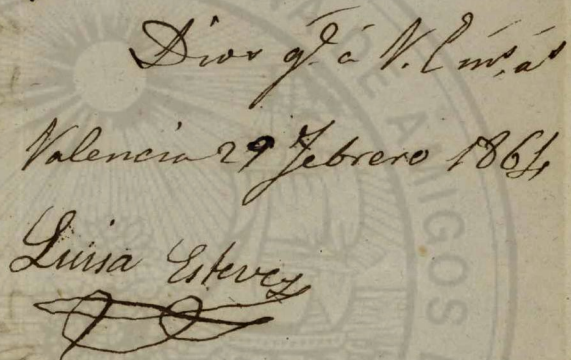 Dios gᵉ á V. E. mˢ. aˢ
Valencia 29 Febrero 1864
Luisa Estevez
DE AMIGOS